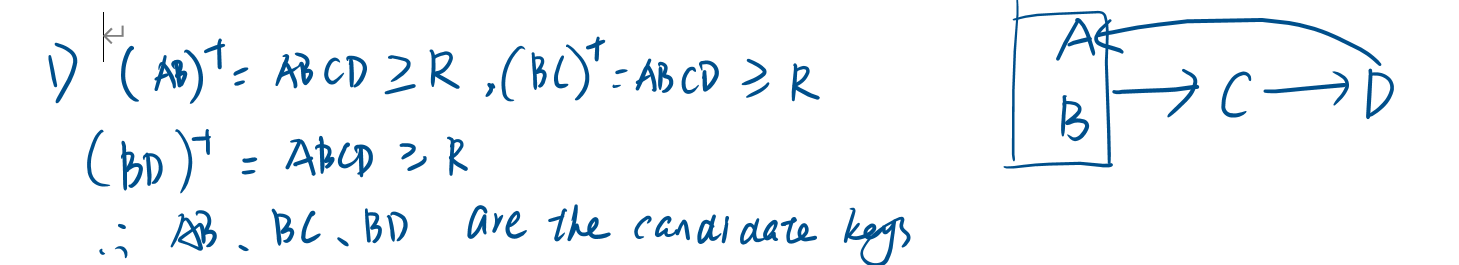 1) (AB)⁺ = ABCD ≥ R , (BC)⁺ = ABCD ≥ R
(BD)⁺ = ABCD ≥ R
∴ AB、BC、BD are the candidate keys
A
B → C → D